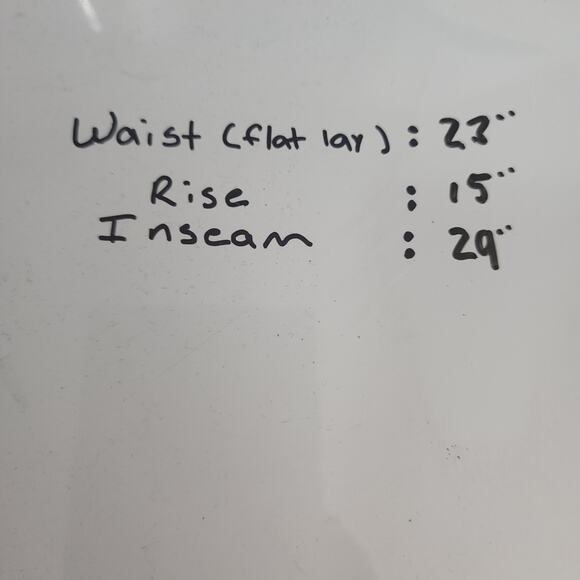 Waist (flat lay) : 23"
Rise : 15"
Inseam : 29"